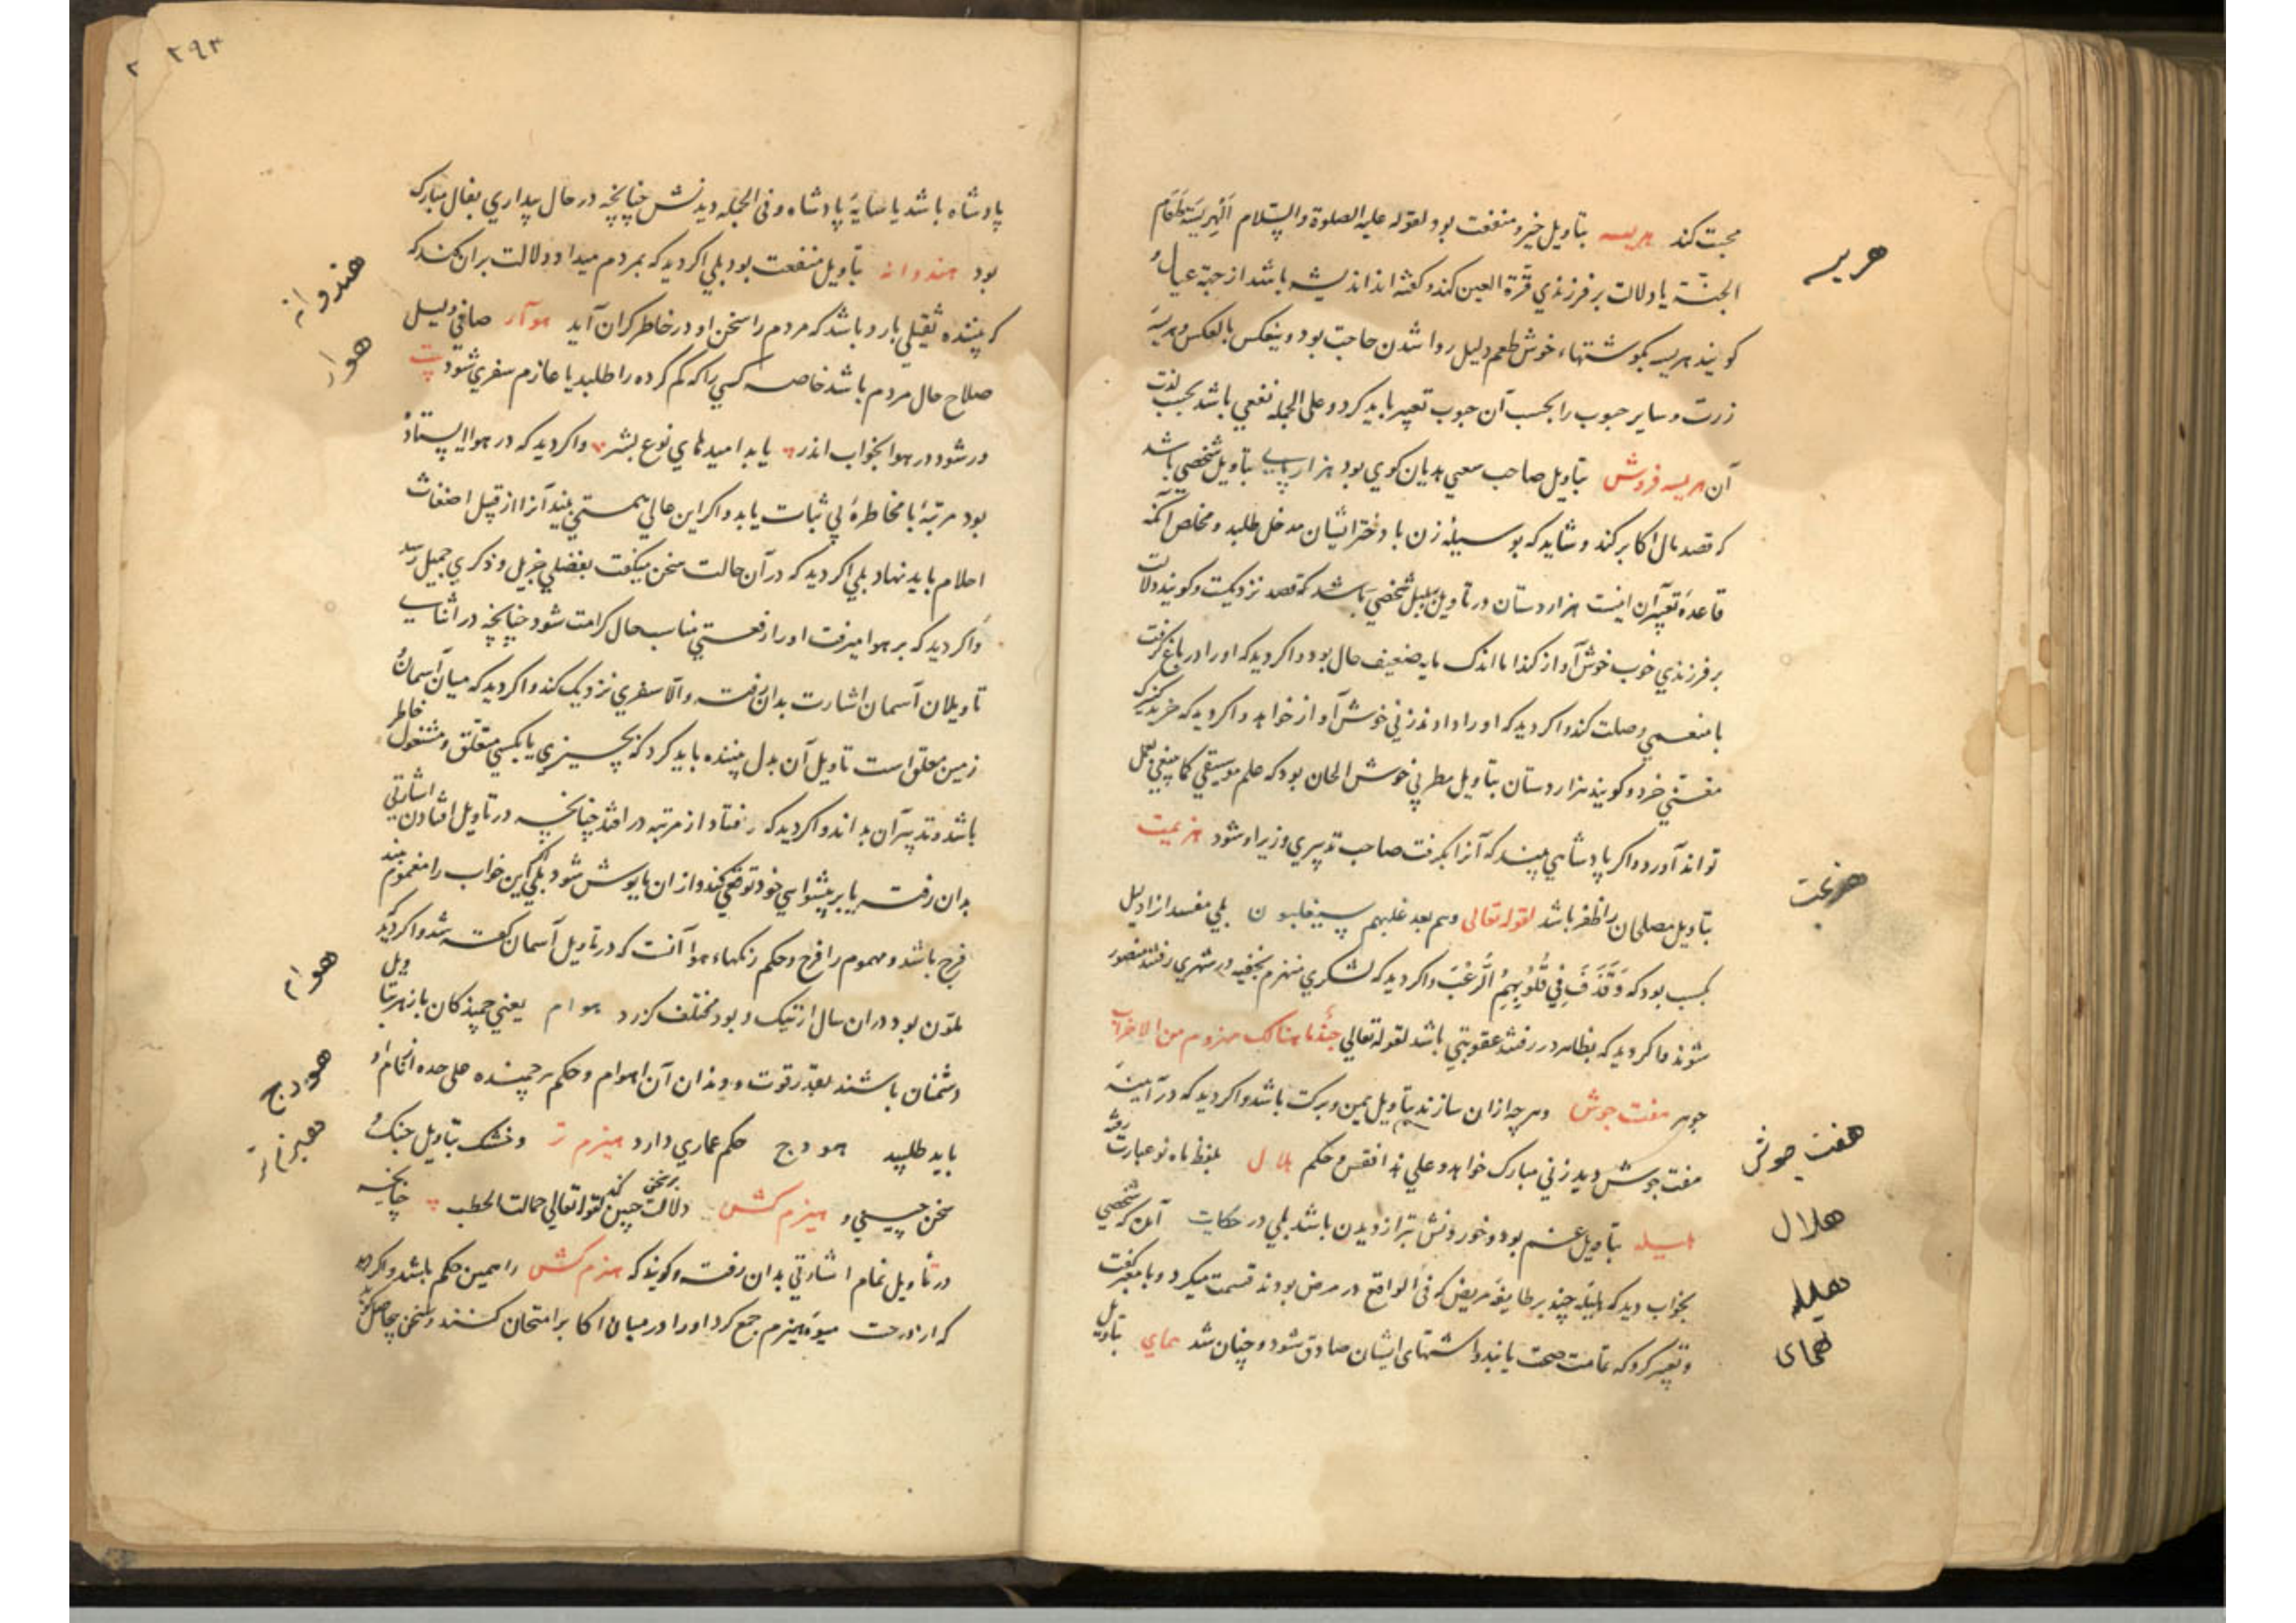 محبت کند هریسه بتاویل خیر و منفعت بود لقوله علیه الصلوة والسلام الهریسة طعام
هریسه
الجنة یا دلالت بر فرزندی قرة العین کند و گفته‌اند اندیشه باشد از جهة عیال و
کویند هریسه بکوشتهاء خوش طعم دلیل روا شدن حاجت بود و ینعکس بالعکس و هریسه
زرت و سایر حبوب را بحسب آن حبوب تعبیر باید کرد و علی الجمله نفعی باشد بحسب لذت
آن هریسه فروش بتاویل صاحب سعیی هدیان کوی بود هزارپایی بتاویل شخصی باشد
که قصد مال اکابر کند و شاید که بوسیله زن با دختر ایشان مدخل طلبد و مخلص آنکه
قاعده تعبیر آن اینست هزاردستان در تاویل بلبل شخصی باشد که قصد نزدیکیت و کویند دلالت
بر فرزندی خوب خوش آواز کند اما اندک مایه ضعیف حال بود و اکر دید که او را در باغ کرفت
با منعمی وصلت کند و اکر دید که او را دادند زنی خوش آواز خواهد و اکر دید که خرید کنیزک
مغنی خرد و کویند هزاردستان بتاویل مطربی خوش الحان بود که علم موسیقی کما ینبغی بعمل
تواند آورد و اکر پادشاهی بیند که آنرا بکرفت صاحب تدبیری وزیر او شود هزیمت
هزیمت
بتاویل مصلحان را ظفر باشد لقوله تعالی وهم بعد غلبهم سیغلبون بلی مفسد را زا دلیل
بحسب بود که وقذف فی قلوبهم الرعب و اکر دید که لشکری منهزم بخفیه در شهری رفتند منصور
شوند و اکر دید که بظاهر در رفتند عقوبتی باشد لقوله تعالی جند ما هنالک مهزوم من الاحزاب
جوهر هفت جوش و هر چه از ان سازند بتاویل یمن و برکت باشد و اکر دید که در آینه
هفت جوش
هفت جوش دید زنی مبارک خواهد و علی هذا فقس و حکم هلال بلفظ ماه نو عبارت رفته
هلال
هلیله بتاویل غم بود و خوردنش بتر از دیدن باشد بلی در حکایت آمد که شخصی
هلیله
بخواب دید که هلیله چند بر طایفه مریض که فی الواقع در مرض بودند قسمت میکرد و با معبر کفت
و تعبیر کرد که تمامت صحت یابند و اشتهای ایشان صادق شود و چنان شد همای بتاویل
همای
۲۹۳
۲
پادشاه باشد یا سایهٔ پادشاه و فی الجمله دیدنش چنانچه در حال بیداری بفال مبارک
بود هندوانه بتاویل منفعت بود بلی اکر دید که بمردم میداد دلالت بر ان کند که
هندوانه
که بیننده ثقیلی بارد باشد که مردم را سخن او در خاطر کران آید هوا ار صافی دلیل
هوا
صلاح حال مردم باشد خاصه کسی را که کم کرده را طلبد یا عازم سفری شود بیت
ور شود در هوا بخواب اندر یابد امیدهای نوع بشر و اکر دید که در هوا ایستاده
بود مرتبهٔ با مخاطرهٔ بی ثبات یابد و اکر این حال مستی بیند آنرا از قبیل اضغاث
احلام باید نهاد بلی اکر دید که در آن حالت سخن میکفت بفضلی جزیل و ذکری جمیل رسد
و اکر دید که بر هوا میرفت او را رفعتی مناسب حال کرامت شود چنانچه در اثنای
تاویلات آسمان اشارت بدان رفت و الا سفری نزدیک کند و اکر دید که میان آسمان و
زمین معلق است تاویل آن بدل بیننده باید کرد که بچیزی یا بکسی متعلق و مشغول خاطر
باشد و تدبیر آن بداند و اکر دید که بیفتاد از مرتبه در افتد چنانچه در تاویل افتادن اشارتی
بدان رفت یا بر پیشوایی خود توقع کند و از ان مایوس شود بلی این خواب را مغموم بیند
فرح باشد و مهموم را فرج و حکم رنکهاء هوا آنست که در تاویل آسمان کفته شد و اکر دید که
ملون بود در ان سال از نیک و بد مختلف کذرد هوام یعنی جنبندکان با زهر بتاویل
هوام
دشمنان باشند بقدر قوت و دندان آن هوام و حکم هر جنبنده علی حده انجام او
باید طلبید هودج حکم عماری دارد هیزم تر و خشک بتاویل جنک و
هودج
هیزم تر
سخن چینی و هیزم کش دلالت بر سخن چین کند لقوله تعالی حمالة الحطب چنانچه
در تاویل نمام اشارتی بدان رفت و کویند که هیزم کش را همین حکم باشد و اکر دید
که از درخت میوه هیزم جمع کرد او را در میان اکابر امتحان کنند و سخن چاصل کند